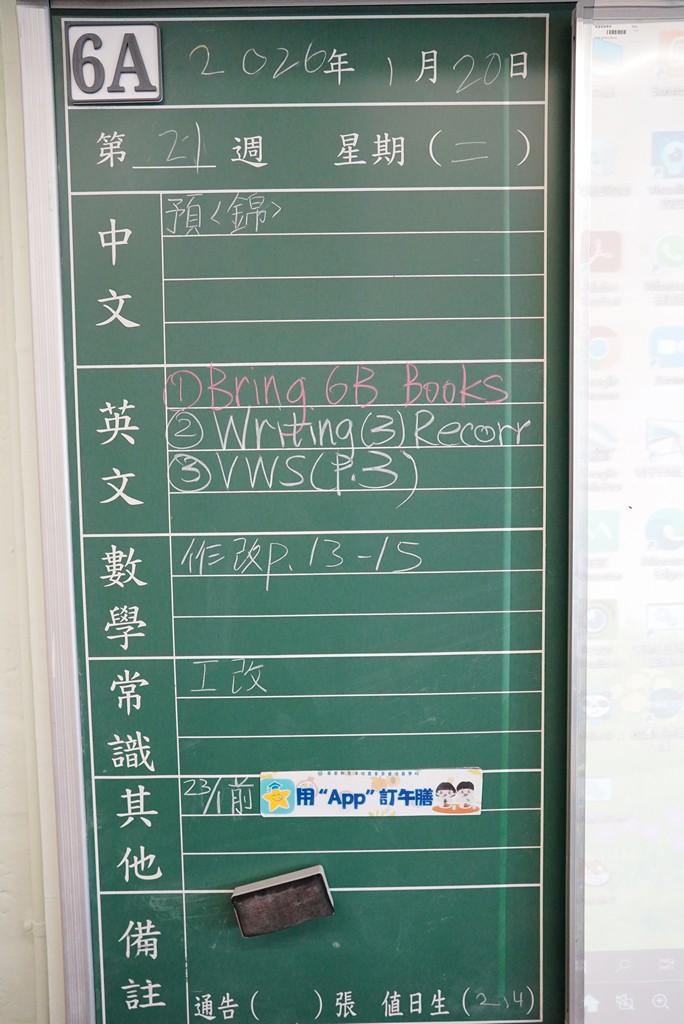 6A
2026年 1月20日
第 21 週 星期（二）
中文
預<錦>
英文
① Bring 6B Books
② Writing(3) Recorr
③ VWS(P.3)
數學
作改p.13-15
常識
工改
其他
23/1前 用“App”訂午膳
備註
通告（ ）張 值日生（2,4）